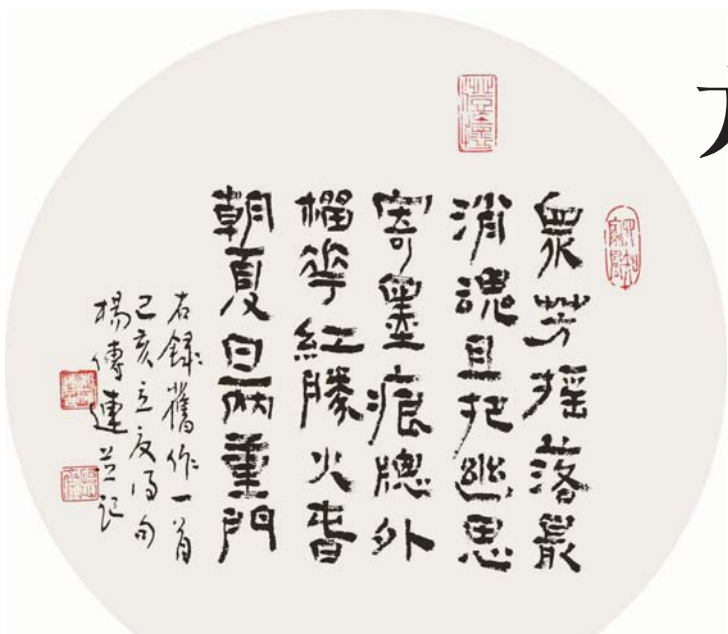 眾芳摇落最
消魂且把幽思
寄墨痕牕外
榴華紅勝火旾
朝夏日兩重門
右錄舊作一首
己亥立夏得句
楊傳連並記